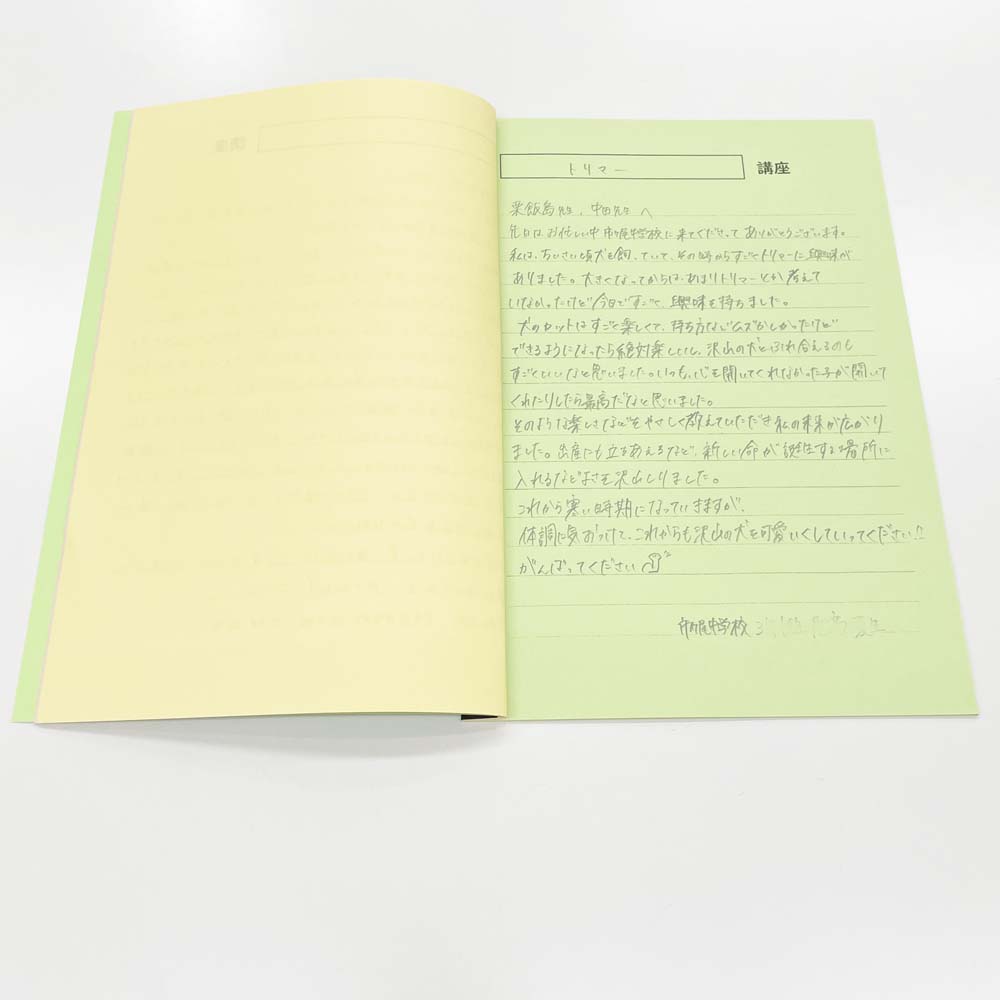 トリマー 講座
栗飯島先生、中田先生へ
先日はお忙しい中市ヶ尾中学校に来てくださってありがとうございます。
私は、ちいさい頃犬を飼っていて、その時からすごくトリマーに興味が
ありました。大きくなってからは、あまりトリマーとか考えて
いなかったけど今日ですごく、興味を持ちました。
犬のカットはすごく楽しくて、持ち方などムズかしかったけど
できるようになったら絶対楽しいし、沢山の犬とふれ合えるのも
すごくいいなと思いました。いつも、心を開いてくれなかった子が開いて
くれたりしたら最高だなと思いました。
そのような楽しさなどをやさしく教えていただき私の未来が広がり
ました。出産にも立ちあえるなど、新しい命が誕生する場所に
入れるなどよさを沢山しりました。
これから寒い時期になっていきますが、
体調に気おつけて、これからも沢山の犬を可愛いくしていってください!!
がんばってください
市ヶ尾中学校